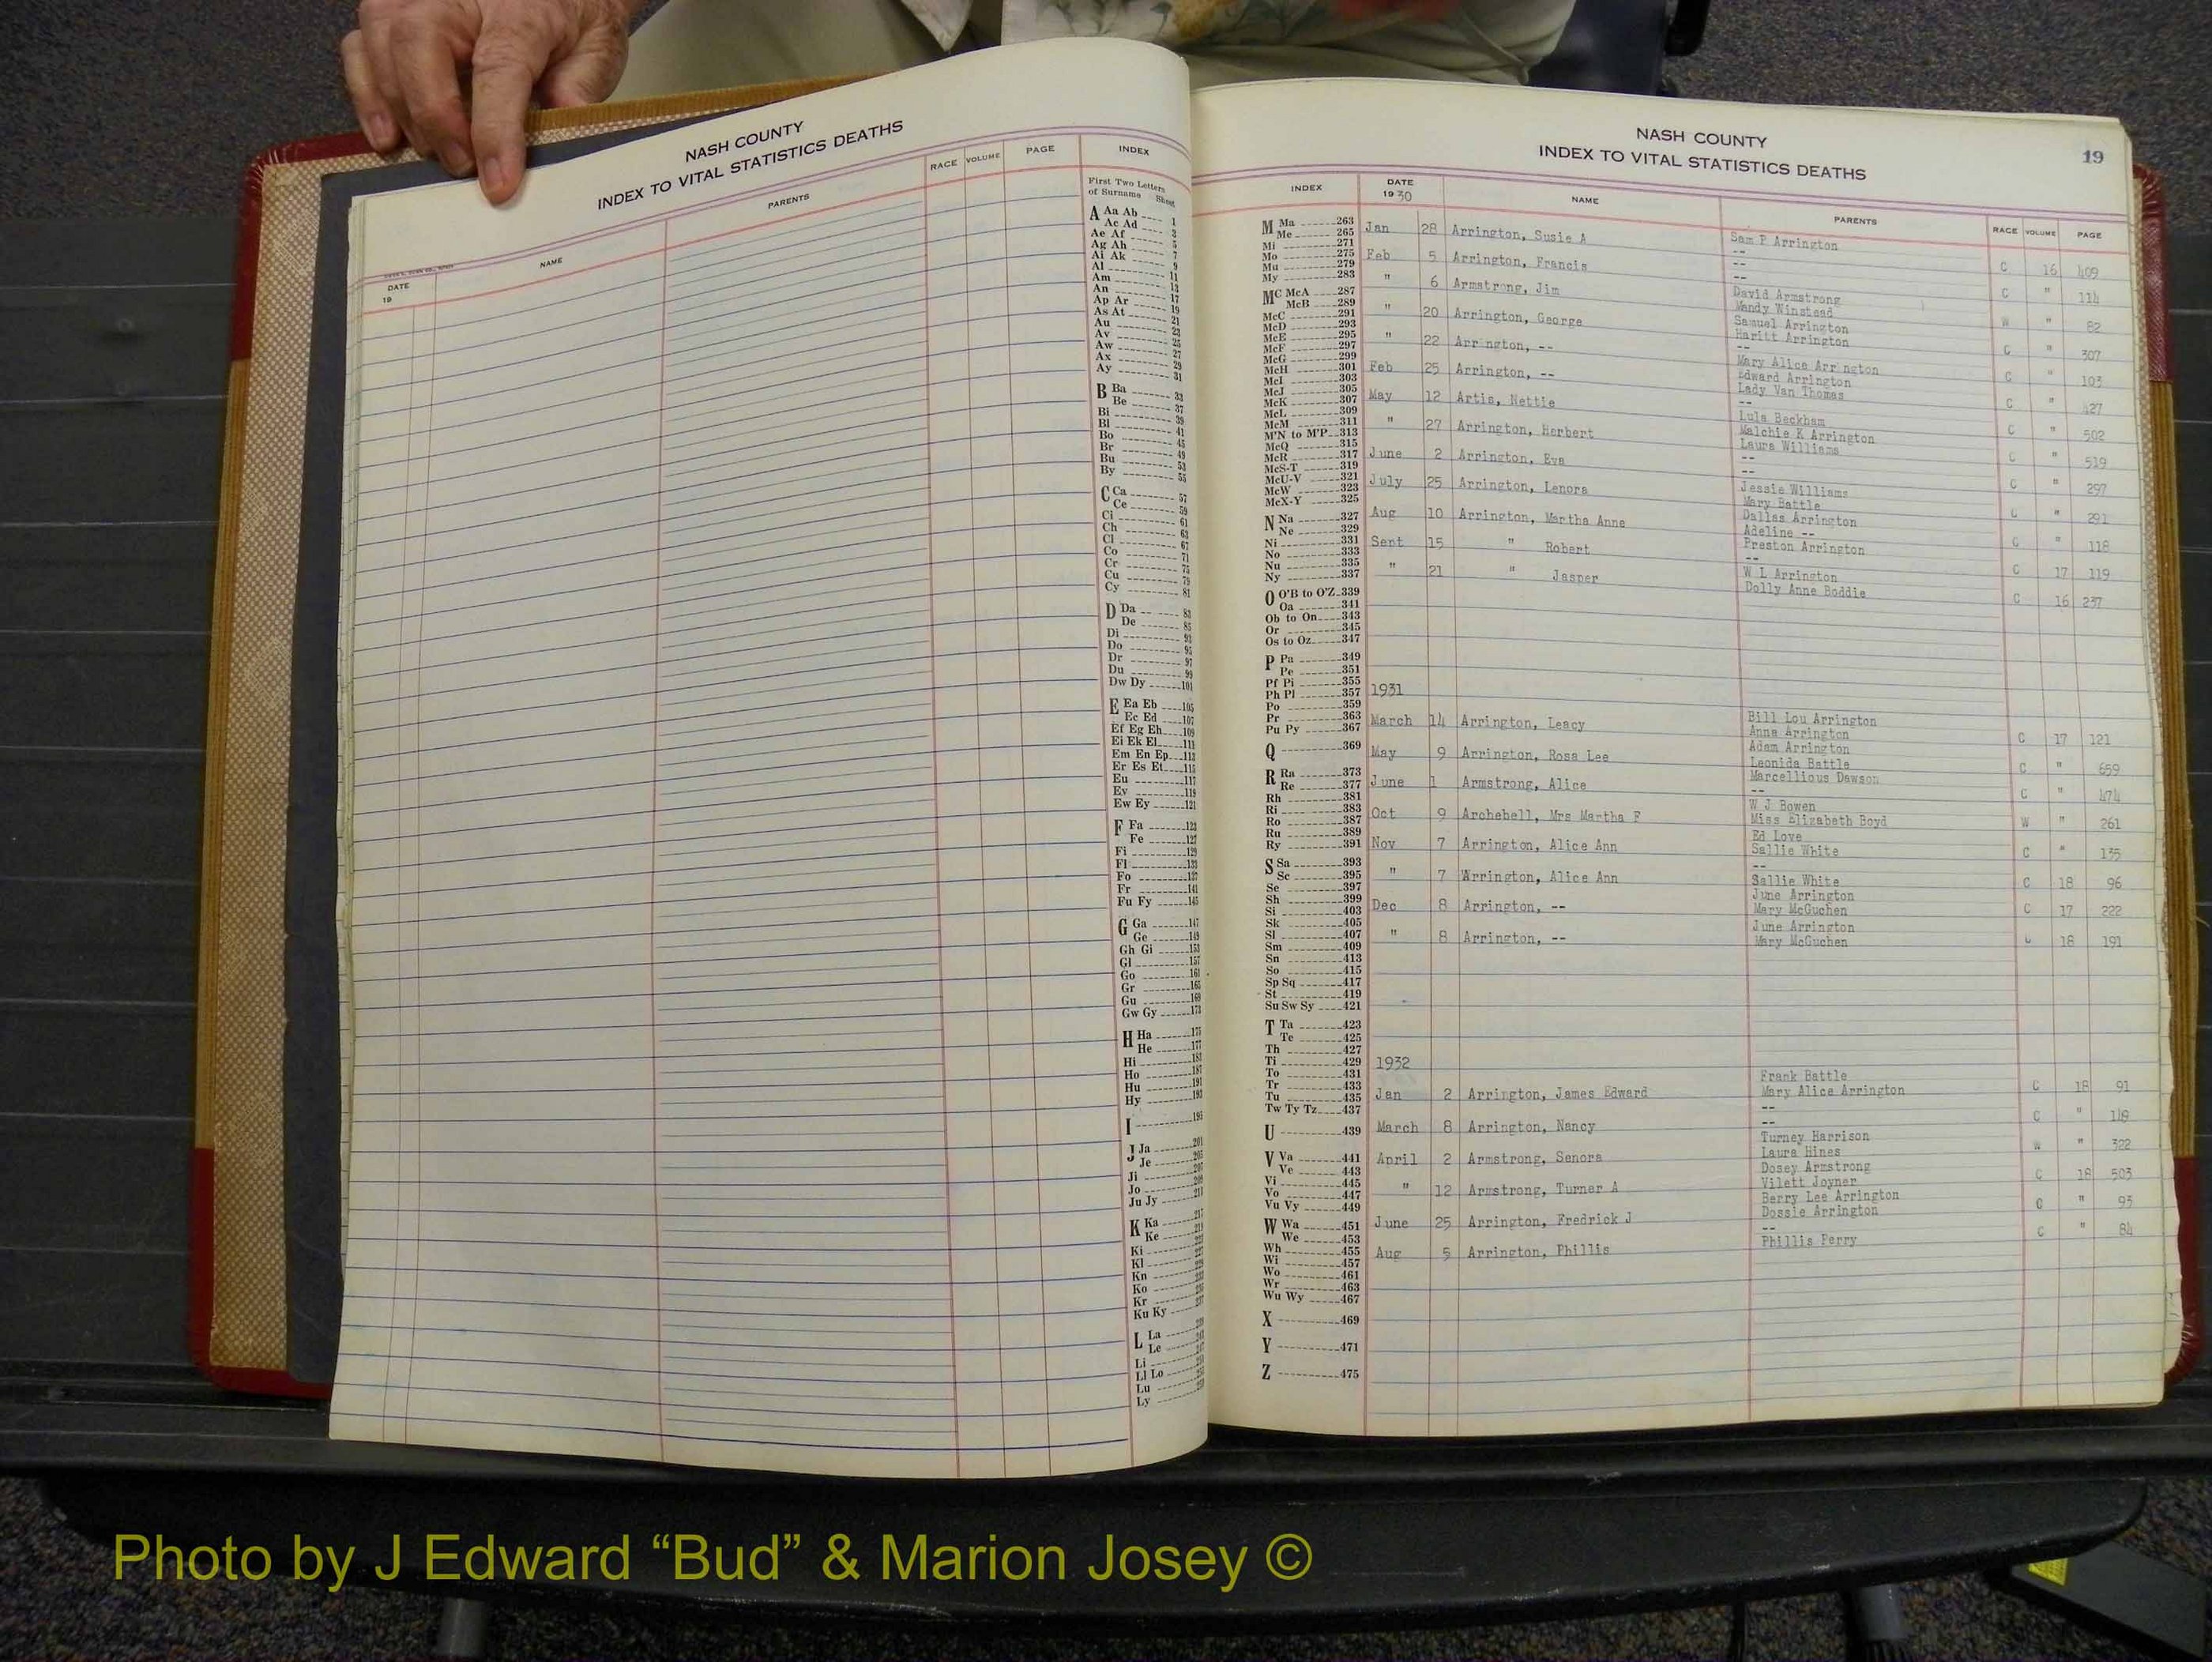 NASH COUNTY
INDEX TO VITAL STATISTICS DEATHS
DATE
19
NAME
PARENTS
RACE
VOLUME
PAGE
INDEX
First Two Letters
of Surname Sheet
A Aa Ab 1
Ac Ad 3
Ae Af 5
Ag Ah 7
Ai Ak 9
Al 11
Am 13
An 17
Ap Ar 19
As At 21
Au 23
Av 25
Aw 27
Ax 29
Ay 31
B Ba 33
Be 37
Bi 39
Bl 41
Bo 45
Br 49
Bu 53
By 55
C Ca 57
Ce 59
Ci 61
Ch 63
Cl 67
Co 71
Cr 75
Cu 79
Cy 81
D Da 83
De 85
Di 93
Do 95
Dr 97
Du 99
Dw Dy 101
E Ea Eb 105
Ec Ed 107
Ef Eg Eh 109
Ei Ek El 111
Em En Ep 113
Er Es Et 115
Eu 117
Ev 119
Ew Ey 121
F Fa 123
Fe 127
Fi 129
Fl 133
Fo 137
Fr 141
Fu Fy 145
G Ga 147
Ge 149
Gh Gi 153
Gl 157
Go 161
Gr 165
Gu 169
Gw Gy 173
H Ha 175
He 177
Hi 183
Ho 187
Hu 191
Hy 193
I 195
J Ja 201
Je
Ji
Jo
Ju Jy
K Ka
Ke
Ki
Kl
Kn
Ko
Kr
Ku Ky
L La
Le
Li
Ll Lo
Lu
Ly
NASH COUNTY
INDEX TO VITAL STATISTICS DEATHS
19
INDEX
DATE
1930
NAME
PARENTS
RACE
VOLUME
PAGE
M Ma 263
Me 265
Mi 271
Mo 275
Mu 279
My 283
MC McA 287
McB 289
McC 291
McD 293
McE 295
McF 297
McG 299
McH 301
McI 303
McJ 305
McK 307
McL 309
McM 311
M'N to M'P 313
McQ 315
McR 317
McS-T 319
McU-V 321
McW 323
McX-Y 325
N Na 327
Ne 329
Ni 331
No 333
Nu 335
Ny 337
O O'B to O'Z 339
Oa 341
Ob to On 343
Or 345
Os to Oz 347
P Pa 349
Pe 351
Pf Pi 355
Ph Pl 357
Po 359
Pr 363
Pu Py 367
Q 369
R Ra 373
Re 377
Rh 381
Ri 383
Ro 387
Ru 389
Ry 391
S Sa 393
Sc 395
Se 397
Sh 399
Si 403
Sk 405
Sl 407
Sm 409
Sn 413
So 415
Sp Sq 417
St 419
Su Sw Sy 421
T Ta 423
Te 425
Th 427
Ti 429
To 431
Tr 433
Tu 435
Tw Ty Tz 437
U 439
V Va 441
Ve 443
Vi 445
Vo 447
Vu Vy 449
W Wa 451
We 453
Wh 455
Wi 457
Wo 461
Wr 463
Wu Wy 467
X 469
Y 471
Z 475
Jan 28 Arrington, Susie A Sam P Arrington C 16 409
--
Feb 5 Arrington, Francis -- C " 114
--
" 6 Armstrong, Jim David Armstrong W " 82
Mandy Winstead
" 20 Arrington, George Samuel Arrington C " 307
Haritt Arrington
" 22 Arr ngton, -- -- C " 103
Mary Alice Arr ngton
Feb 25 Arrington, -- Edward Arrington C " 427
Lady Van Thomas
May 12 Artis, Nettie -- C " 502
Lula Beckham
" 27 Arrington, Herbert Malchie K Arrington C " 519
Laura Williams
June 2 Arrington, Eva -- C " 297
--
July 25 Arrington, Lenora Jessie Williams C " 291
Mary Battle
Aug 10 Arrington, Martha Anne Dallas Arrington C " 118
Adeline --
Sept 15 " Robert Preston Arrington C 17 119
--
" 21 " Jasper W L Arrington C 16 237
Dolly Anne Boddie
1931
March 14 Arrington, Leacy Bill Lou Arrington C 17 121
Anna Arrington
May 9 Arrington, Rosa Lee Adam Arrington C " 659
Leonida Battle
June 1 Armstrong, Alice Marcellious Dawson C " 474
--
Oct 9 Archebell, Mrs Martha F W J Bowen W " 261
Miss Elizabeth Boyd
Nov 7 Arrington, Alice Ann Ed Love C " 135
Sallie White
" 7 Arrington, Alice Ann -- C 18 96
Sallie White
Dec 8 Arrington, -- June Arrington C 17 222
Mary McGuchen
" 8 Arrington, -- June Arrington C 18 191
Mary McGuchen
1932
Frank Battle
Jan 2 Arrington, James Edward Mary Alice Arrington C 18 91
--
March 8 Arrington, Nancy -- C " 118
Turney Harrison
April 2 Armstrong, Senora Laura Hines W " 322
Dosey Armstrong
" 12 Armstrong, Turner A Vilett Joyner C 18 503
Berry Lee Arrington
June 25 Arrington, Fredrick J Dossie Arrington C " 93
--
Aug 5 Arrington, Phillis Phillis Perry C " 84
Photo by J Edward “Bud” & Marion Josey ©